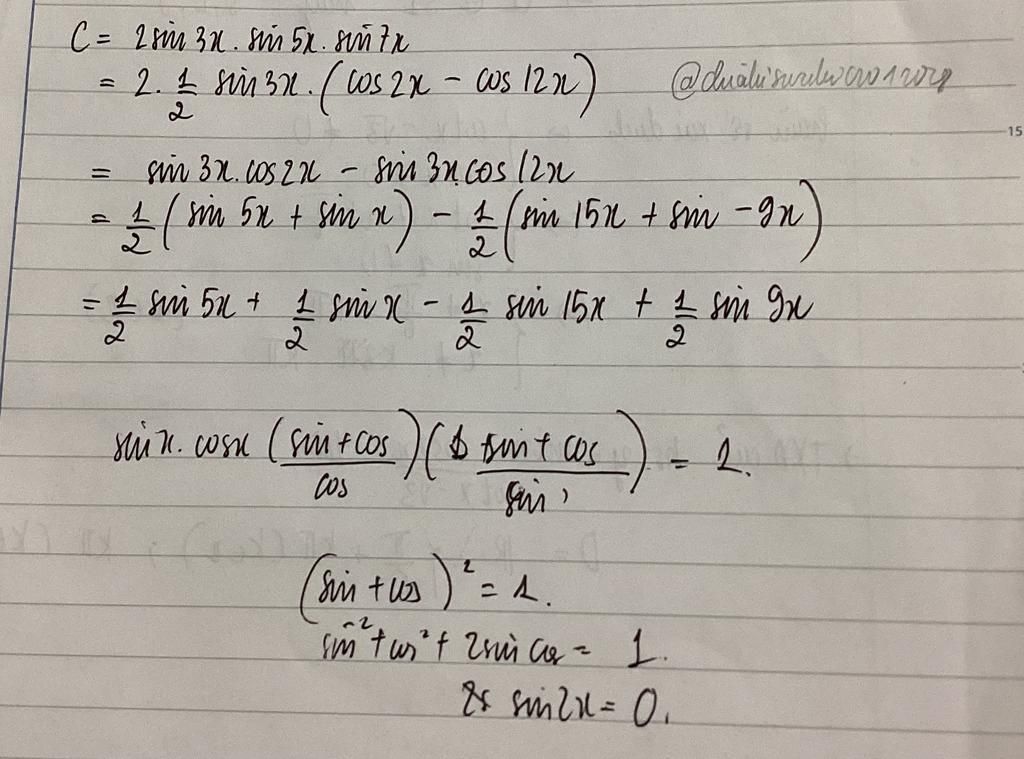 C = 2sin 3x . sin 5x . sin 7x
= 2 . 1/2 sin 3x . (cos 2x - cos 12x)
15
= sin 3x . cos 2x - sin 3x . cos 12x
= 1/2 (sin 5x + sin x) - 1/2 (sin 15x + sin -9x)
= 1/2 sin 5x + 1/2 sin x - 1/2 sin 15x + 1/2 sin 9x
sin x . cos x ((sin + cos)/cos) ((sin + cos)/sin) = 1.
(sin + cos)² = 1.
sin² + cos² + 2 sin cos = 1.
sin 2x = 0.